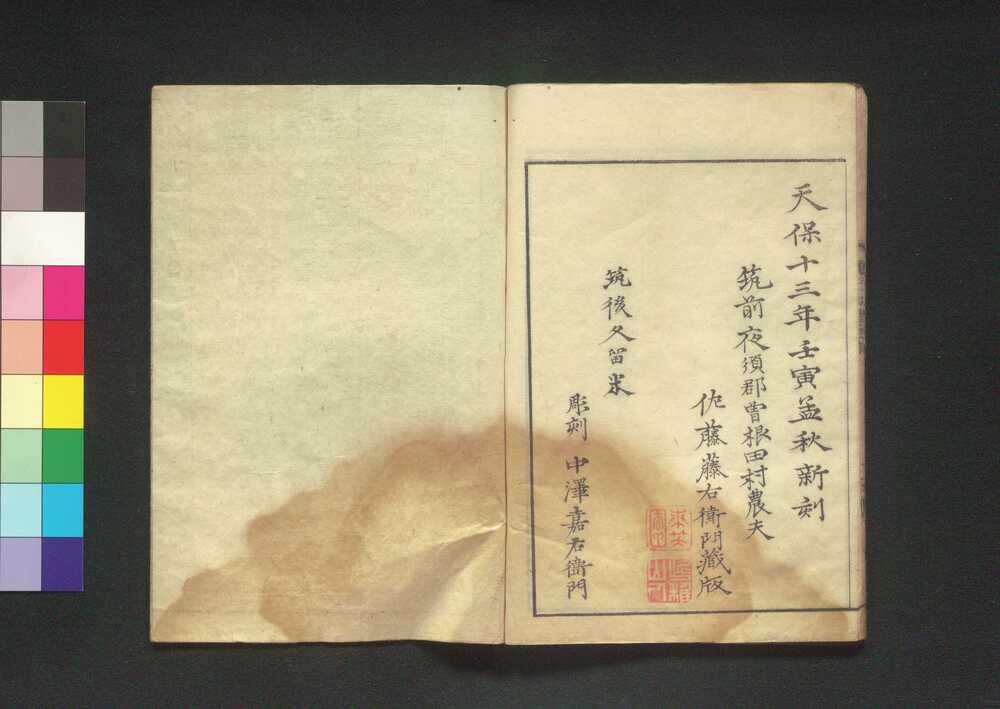 天保十三年壬寅孟秋新刻
筑前夜須郡曽根田村農夫
佐藤藤右衛門藏版
筑後久留米
彫刻 中澤嘉右衛門